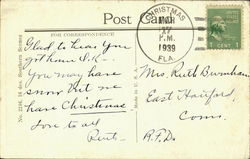 Post Card
FOR CORRESPONDENCE
CHRISTMAS
MAR
17
P.M.
1939
FLA.
1 CENT 1
Glad to hear you
got home O.K.
You may have
snow but we
have Christmas
Love to all
Mrs. Ruth Burnham
East Hartford
Conn.
R.F.D.